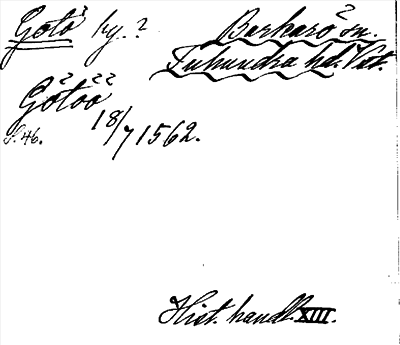 Götö by.? Barkarö sn.
Tuhundra hd. Vst.
Götöö 18/7 1562.
S. 46.
Hist. handl. XIII.